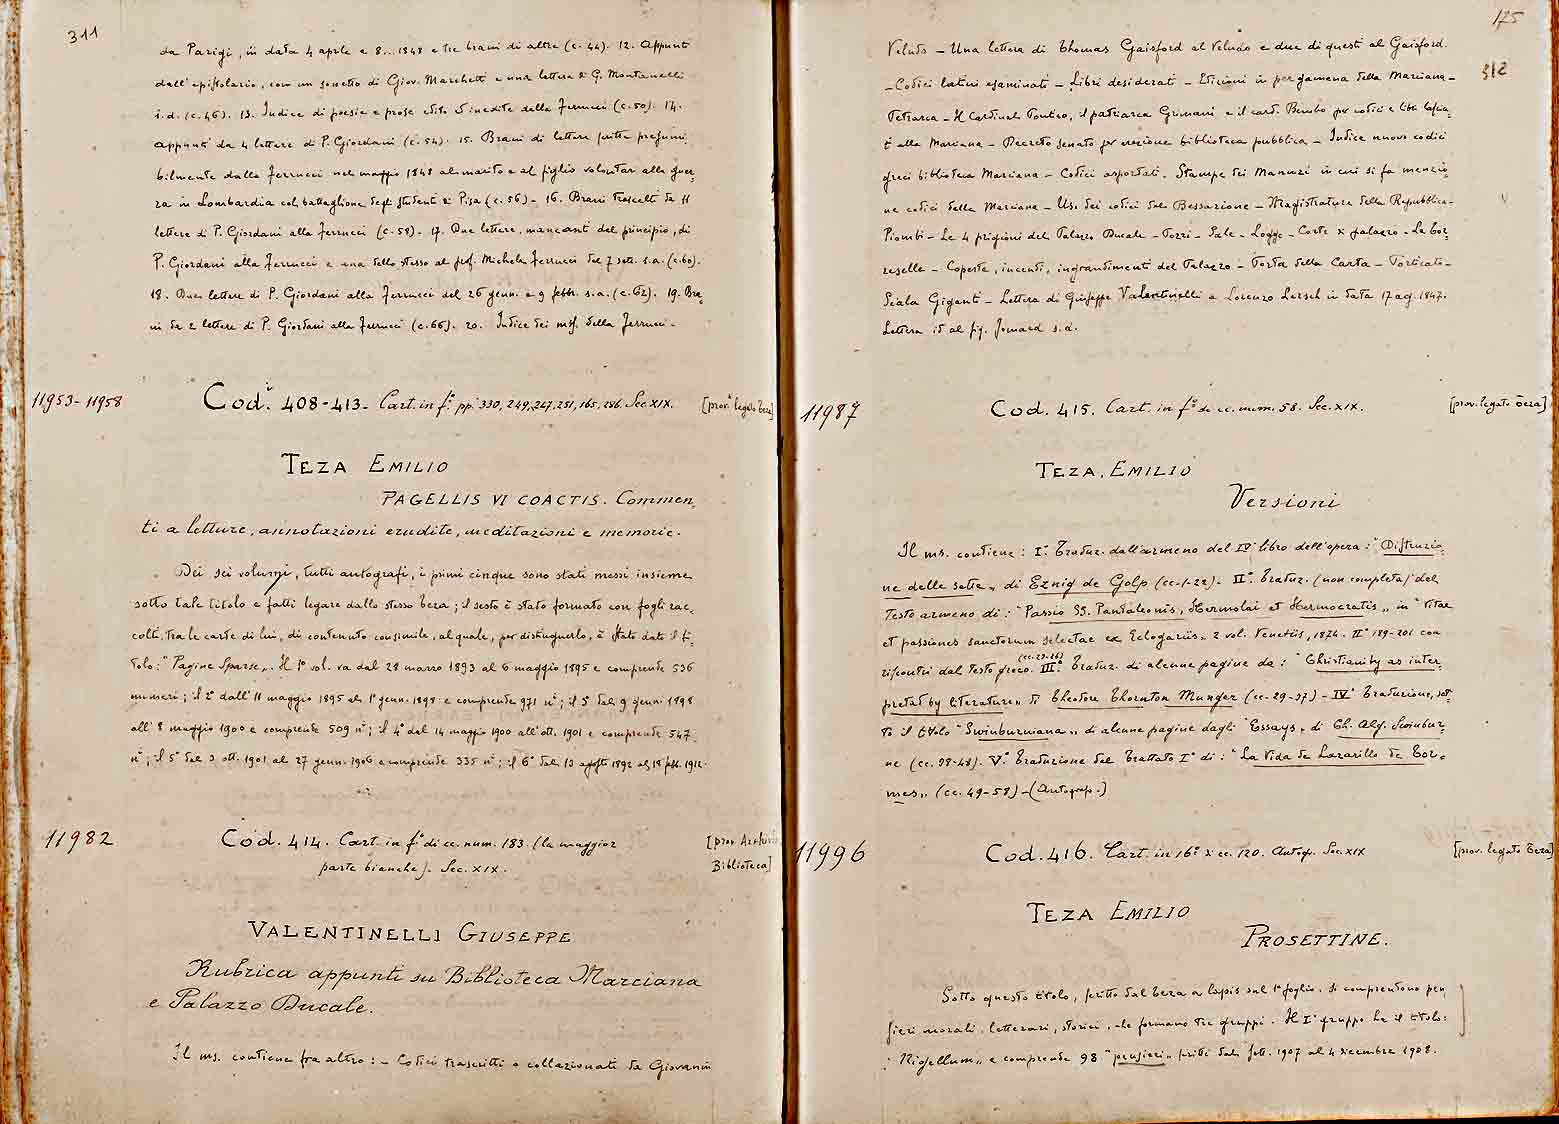 311
da Parigi, in data 4 aprile e 8...1848 e tre brani di altre (c. 44). 12. Appunti
dall'epistolario, con un sonetto di Giov. Marchetti e una lettera di G. Montanelli
s.d. (c. 46). 13. Indice di poesie e prose edite ed inedite della Ferrucci (c. 50). 14.
Appunti da 4 lettere di P. Giordani (c. 54). 15. Brani di lettere scritte presumi,
bilmente dalla Ferrucci nel maggio 1848 al marito e al figlio volontari alla guer,
ra in Lombardia col battaglione degli studenti di Pisa (c. 56) - 16. Brani trascelti da 11
lettere di P. Giordani alla Ferrucci (c. 58). 17. Due lettere, mancanti del principio, di
P. Giordani alla Ferrucci e una dello stesso al prof. Michele Ferrucci del 7 sett. s.a. (c. 60).
18. Due lettere di P. Giordani alla Ferrucci del 26 genn. e 9 febbr. s.a. (c. 62). 19. Bra,
ni da 2 lettere di P. Giordani alla Ferrucci (c. 66). 20. Indice dei mss. della Ferrucci.
11953-11958
Cod.i 408-413. Cart. in f.o pp. 330, 249, 247, 251, 165, 286. Sec. XIX.
[prov.a legato Teza]
TEZA EMILIO
PAGELLIS VI COACTIS. Commen,
ti a letture, annotazioni erudite, meditazioni e memorie.
Dei sei volumi, tutti autografi, i primi cinque sono stati messi insieme
sotto tale titolo e fatti legare dallo stesso Teza; il sesto è stato formato con fogli rac,
colti tra le carte di lui, di contenuto consimile, al quale, per distinguerlo, è stato dato il ti,
tolo: "Pagine Sparse". Il 1o vol. va dal 28 marzo 1893 al 6 maggio 1895 e comprende 536
numeri; il 2o dall'11 maggio 1895 al 1o genn. 1898 e comprende 971 ni; il 3o dal 9 genn. 1898
all'8 maggio 1900 e comprende 509 ni; il 4o dal 14 maggio 1900 all'ott. 1901 e comprende 547
ni; il 5o dal 3 ott. 1901 al 27 genn. 1906 e comprende 335 ni; il 6o dal 13 agosto 1892 al 18 febb. 1912.
11982
Cod. 414. Cart. in f.o di cc. num. 183 (la maggior
parte bianche). Sec. XIX.
[prov. Archivio
Biblioteca]
VALENTINELLI GIUSEPPE
Rubrica appunti su Biblioteca Marciana
e Palazzo Ducale.
Il ms. contiene fra altro: - Codici trascritti o collazionati da Giovanni
175
312
Veludo - Una lettera di Thomas Gaisford al Veludo e due di questi al Gaisford.
- Codici latini esaminati - Libri desiderati - Edizioni in pergamena della Marciana -
Petrarca - Il Cardinale Pontico, il patriarca Grimani e il card. Bembo per codici e libri lascia,
ti alla Marciana - Decreto senato per erezione biblioteca pubblica - Indice nuovo codici
greci biblioteca Marciana - Codici asportati. Stampe dei Manuzi in cui si fa menzio,
ne codici della Marciana - Uso dei codici del Bessarione - Magistrature della Repubblica -
Piombi - Le 4 prigioni del Palazzo Ducale - Pozzi - Sale - Logge - Corte di palazzo - La Tor,
reselle - Coperte, incendi, ingrandimenti del Palazzo - Porta della Carta - Porticato -
Scala Giganti - Lettera di Giuseppe Valentinelli a Lorenzo Lersch in data 17 ag. 1847.
Lettera id al sig. Jomard s.d.
11987
Cod. 415. Cart. in f.o di cc. num. 58. Sec. XIX.
[prov. legato Teza]
TEZA, EMILIO
Versioni
Il ms. contiene: I.o Traduz. dall'armeno del IV libro dell'opera: "Distruzio,
ne delle sette" di Eznig de Golp (cc. 1-22). II.o Traduz. (non completa) del
testo armeno di: "Passio SS. Pantaleonis, Hermolai et Hermocratis" in "Vitae
et passiones sanctorum selectae ex Eclogariis" 2 vol. Venetiis, 1874. IIo 189-201 con
riscontri dal testo greco. (cc. 23-26) III.o Traduz. di alcune pagine da: "Christianity as inter,
preted by literature" di Theodore Thornton Munger (cc. 29-37) - IV.o Traduzione, sot,
to il titolo "Swinburniana" di alcune pagine dagli "Essays" di Ch. Alg. Swinbur,
ne (cc. 38-48). V.o Traduzione del Trattato Io di: "La Vida de Lazarillo de Tor,
mes" (cc. 49-58) - (Autograf.)
11996
Cod. 416. Cart. in 16o di cc. 120. Autogr. Sec. XIX
[prov. legato Teza]
TEZA EMILIO
PROSETTINE.
Sotto questo titolo, scritto dal Teza a lapis sul 1o foglio, si comprendono pen,
sieri morali, letterari, storici, che formano tre gruppi. Il Io gruppo ha il titolo:
"Rigellum" e comprende 98 "pensieri" scritti dal sett. 1907 al 4 dicembre 1908.